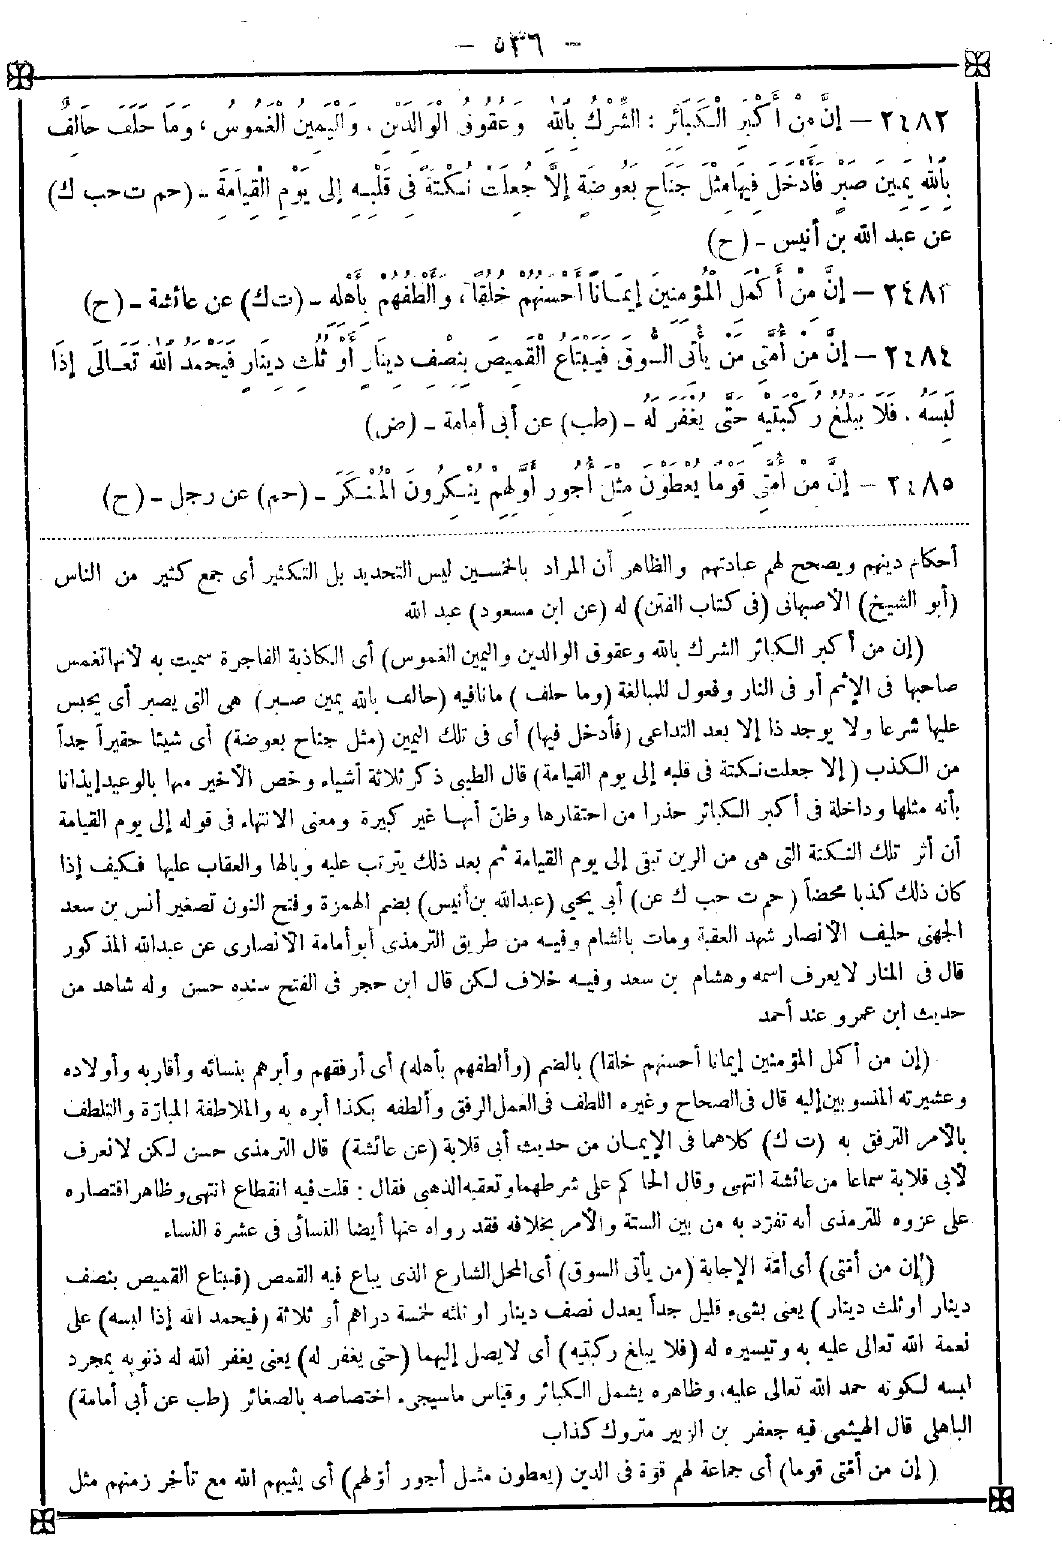 - ٥٣٦ -
٢٤٨٢ - إِنَّ مِنْ أَكْبَرِ الْكَبَائِرِ : الشِّرْكُ بِاللهِ وَعُقُوقُ الْوَالِدَيْنِ ، وَالْيَمِينُ الْغَمُوسُ ، وَمَا حَلَفَ حَالِفٌ
بِاللهِ يَمِينَ صَبْرٍ فَأَدْخَلَ فِيهَا مِثْلَ جَنَاحِ بَعُوضَةٍ إِلَّا جُعِلَتْ نُكْتَةً فِي قَلْبِهِ إِلَى يَوْمِ الْقِيَامَةِ - (حم ت حب ك)
عن عبد الله بن أنيس - (ح)
٢٤٨٣ - إِنَّ مِنْ أَكْمَلِ الْمُؤْمِنِينَ إِيمَانًا أَحْسَنُهُمْ خُلُقًا ، وَأَلْطَفُهُمْ بِأَهْلِهِ - (ت ك) عن عائشة - (ح)
٢٤٨٤ - إِنَّ مِنْ أُمَّتِي مَنْ يَأْتِي السُّوقَ فَيَبْتَاعُ الْقَمِيصَ بِنِصْفِ دِينَارٍ أَوْ ثُلُثِ دِينَارٍ فَيَحْمَدُ اللهَ تَعَالَى إِذَا
لَبِسَهُ ، فَلَا يَبْلُغُ رُكْبَتَيْهِ حَتَّى يُغْفَرَ لَهُ - (طب) عن أبى أمامة - (ض)
٢٤٨٥ - إِنَّ مِنْ أُمَّتِي قَوْمًا يُعْطَوْنَ مِثْلَ أُجُورِ أَوَّلِهِمْ يُنْكِرُونَ الْمُنْكَرَ - (حم) عن رجل - (ح)
أحكام دينهم ويصحح لهم عبادتهم والظاهر أن المراد بالخمسين ليس التحديد بل التكثير أى جمع كثير من الناس
(أبو الشيخ) الأصبهانى (فى كتاب الفتن) له (عن ابن مسعود) عبد الله
(إن من أكبر الكبائر الشرك بالله وعقوق الوالدين واليمين الغموس) أى الكاذبة الفاجرة سميت به لأنها تغمس
صاحبها فى الإثم أو فى النار وفعول للمبالغة (وما حلف) ما نافيه (حالف بالله يمين صبر) هى التى يصبر أى يحبس
عليها شرعا ولا يوجد ذا إلا بعد التداعى (فأدخل فيها) أى فى تلك اليمين (مثل جناح بعوضة) أى شيئا حقيراً جداً
من الكذب (إلا جعلت نكتة فى قلبه إلى يوم القيامة) قال الطيبى ذكر ثلاثة أشياء وخص الأخير منها بالوعيد إيذانا
بأنه مثلها وداخلة فى أكبر الكبائر حذرا من احتقارها وظن أنها غير كبيرة ومعنى الانتهاء فى قوله إلى يوم القيامة
أن أثر تلك النكتة التى هى من الرين تبقى إلى يوم القيامة ثم بعد ذلك يترتب عليه وبالها والعقاب عليها فكيف إذا
كان ذلك كذبا محضاً (حم ت حب ك عن) أبى يحيى (عبدالله بن أنيس) بضم الهمزة وفتح النون تصغير أنس بن سعد
الجهنى حليف الأنصار شهد العقبة ومات بالشام وفيه من طريق الترمذى أبو أمامة الأنصارى عن عبدالله المذكور
قال فى المنار لا يعرف اسمه وهشام بن سعد وفيه خلاف لكن قال ابن حجر فى الفتح سنده حسن وله شاهد من
حديث ابن عمرو عند أحمد
(إن من أكمل المؤمنين إيمانا أحسنهم خلقا) بالضم (وألطفهم بأهله) أى أرفقهم وأبرهم بنسائه وأقاربه وأولاده
وعشيرته المنسوبين إليه قال فى الصحاح وغيره اللطف فى العمل الرفق وألطفه بكذا أبره به والملاطفة المبارّة والتلطف
بالأمر الترفق به (ت ك) كلاهما فى الإيمان من حديث أبى قلابة (عن عائشة) قال الترمذى حسن لكن لا نعرف
لأبى قلابة سماعا من عائشة انتهى وقال الحاكم على شرطهما وتعقبه الذهبى فقال : قلت فيه انقطاع انتهى وظاهر اقتصاره
على عزوه للترمذى أنه تفرّد به من بين الستة والأمر بخلافه فقد رواه عنها أيضا النسائى فى عشرة النساء
(إن من أمتى) أى أمّة الإجابة (من يأتى السوق) أى المحل الشارع الذى يباع فيه القمص (فيبتاع القميص بنصف
دينار أو ثلث دينار) يعنى بشىء قليل جداً يعدل نصف دينار أو ثلثه لخمسة دراهم أو ثلاثة (فيحمد الله إذا لبسه) على
نعمة الله تعالى عليه به وتيسيره له (فلا يبلغ ركبتيه) أى لا يصل إليهما (حتى يغفر له) يعنى يغفر الله له ذنوبه بمجرد
لبسه لكونه حمد الله تعالى عليه، وظاهره يشمل الكبائر وقياس ماسيجىء اختصاصه بالصغائر (طب عن أبى أمامة)
الباهلى قال الهيثمى فيه جعفر بن الزبير متروك كذاب
(إن من أمّتى قوما) أى جماعة لهم قوّة فى الدين (يعطون مثل أجور أوّلهم) أى يثيبهم الله مع تأخر زمنهم مثل